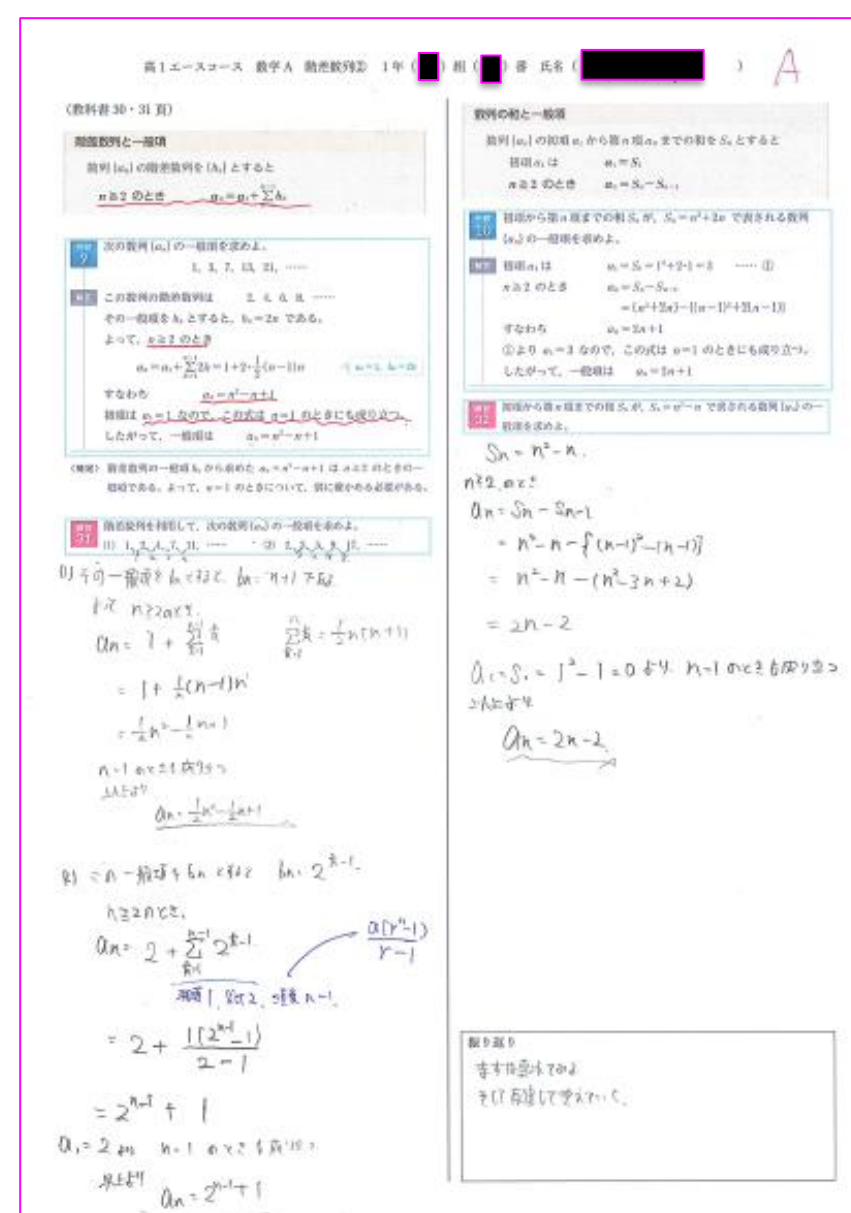 高1エースコース 数学A 階差数列② 1年( )組( )番 氏名( )
A
(教科書30・31頁)
階差数列と一般項
数列{aₙ}の階差数列を{bₙ}とすると
n≧2 のとき aₙ=a₁+Σbₖ
例題 9 次の数列{aₙ}の一般項を求めよ。
1, 3, 7, 13, 21, ……
解答 この数列の階差数列は 2, 4, 6, 8, ……
その一般項をbₙとすると、bₙ=2n である。
よって、n≧2 のとき
aₙ=a₁+Σ2k=1+2・½(n−1)n
すなわち aₙ=n²−n+1
初項は a₁=1 なので、この式は n=1 のときにも成り立つ。
したがって、一般項は aₙ=n²−n+1
階差数列の一般項bₙから求めた aₙ=n²−n+1 は n≧2 のときの一
般項である。よって、n=1 のときについて、別に確かめる必要がある。
31 階差数列を利用して、次の数列{aₙ}の一般項を求めよ。
(1) 1, 2, 4, 7, 11, …… (2) 2, 3, 5, 9, 17, ……
よって n≧2のとき
aₙ= 1 + Σk Σk = ½n(n+1)
= 1 + ½(n−1)n
= ½n²−½n+1
n=1 のときも成り立つ
以上より
aₙ= ½n²−½n+1
bₙ= 2ᵏ⁻¹
n≧2のとき、
aₙ= 2 + Σ2ᵏ⁻¹ a(rⁿ−1)/r−1
初項1, 公比2, 項数 n−1
= 2 + 1(2ⁿ⁻¹−1)/2−1
= 2ⁿ⁻¹ + 1
a₁=2 より n=1 のときも成り立つ
以上より aₙ=2ⁿ⁻¹+1
数列の和と一般項
数列{aₙ}の初項a₁から第n項aₙまでの和をSₙとすると
初項a₁は a₁=S₁
n≧2 のとき aₙ=Sₙ−Sₙ₋₁
例題 10 初項から第n項までの和Sₙが、Sₙ=n²+2n で表される数列
{aₙ}の一般項を求めよ。
解答 初項a₁は a₁=S₁=1²+2・1=3 …… ①
n≧2 のとき aₙ=Sₙ−Sₙ₋₁
=(n²+2n)−{(n−1)²+2(n−1)}
すなわち aₙ=2n+1
①より a₁=3 なので、この式は n=1 のときにも成り立つ。
したがって、一般項は aₙ=2n+1
32 初項から第n項までの和Sₙが、Sₙ=n²−n で表される数列{aₙ}の一
般項を求めよ。
Sₙ = n²−n.
n≧2. のとき
aₙ = Sₙ − Sₙ₋₁
= n²−n−{(n−1)²−(n−1)}
= n²−n−(n²−3n+2)
= 2n−2
a₁=S₁= 1²−1=0 より n=1 のときも成り立つ
これより
aₙ=2n−2
振り返り